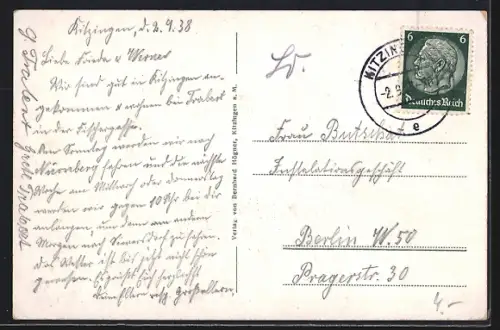 Kitzingen, d. 2.9.38
Liebe Kinder u Werner
Wir sind gut in Kitzingen an-
gekommen u wohnen bei Trabert
in der Fischergasse.
Am Sonntag werden wir nach
Nürnberg fahren und die nächste
Woche am Mittwoch oder Donnerstag
werden wir gegen 10 Uhr bei dir
anlangen, um dann am andern
Morgen nach zu fahren.
Das Wetter ist bis jetzt nicht schön
gewesen. Es grüsst euch herzlichst
Eure Eltern resp. Grosseltern.
Trabert Gretl Trabert
Verlag von Bernhard Högner, Kitzingen a. M.
KITZIN
-2.9
e
6 6
Deutsches Reich
Frau Butscha
Installationsgeschäft
Berlin W. 50
Pragerstr. 30
4.-